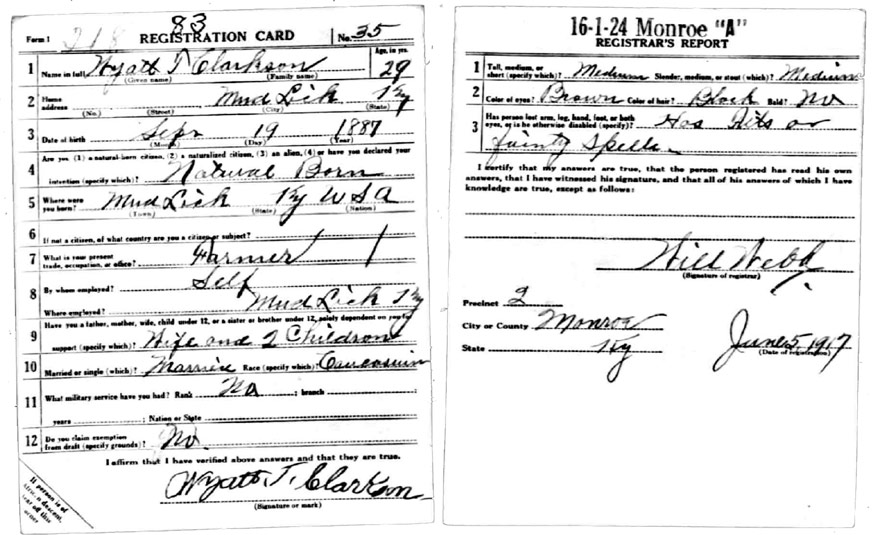 83
Form 1 218 REGISTRATION CARD No. 35
1 Name in full Wyatt T Clarkson Age, in yrs. 29
(Given name) (Family name)
2 Home address Mud Lick Ky
(No.) (Street) (City) (State)
3 Date of birth Sept 19 1887
(Month) (Day) (Year)
4 Are you (1) a natural-born citizen, (2) a naturalized citizen, (3) an alien, (4) or have you declared your
intention (specify which)? Natural Born
5 Where were you born? Mud Lick Ky USA
(Town) (State) (Nation)
6 If not a citizen, of what country are you a citizen or subject?
7 What is your present trade, occupation, or office? Farmer
8 By whom employed? Self
Where employed? Mud Lick Ky
9 Have you a father, mother, wife, child under 12, or a sister or brother under 12, solely dependent on you for
support (specify which)? Wife and 2 Children
10 Married or single (which)? Married Race (specify which)? Caucasian
11 What military service have you had? Rank No ; branch ;
years ; Nation or State
12 Do you claim exemption from draft (specify grounds)? No.
I affirm that I have verified above answers and that they are true.
Wyatt T. Clarkson
(Signature or mark)
If person is of
descent,
off this
16-1-24 Monroe "A"
REGISTRAR'S REPORT
1 Tall, medium, or short (specify which)? Medium Slender, medium, or stout (which)? Medium
2 Color of eyes? Brown Color of hair? Black Bald? No
3 Has person lost arm, leg, hand, foot, or both eyes, or is he otherwise disabled (specify)? Has Fits or
fainty Spells.
I certify that my answers are true, that the person registered has read his own
answers, that I have witnessed his signature, and that all of his answers of which I have
knowledge are true, except as follows:
Will Webb
(Signature of registrar)
Precinct 2
City or County Monroe
State Ky June 5, 1917
(Date of registration)